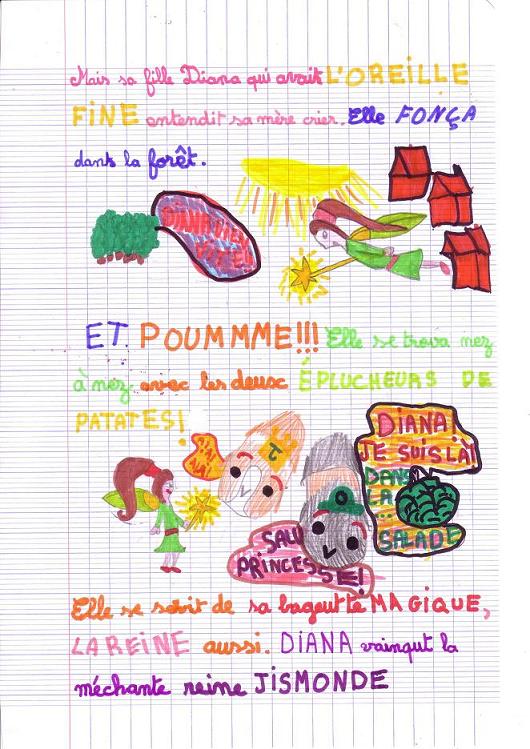 Mais sa fille Diana qui avait L'OREILLE
FINE entendit sa mère crier. Elle FONÇA
dans la forêt.
DIANA VIEN
VITE!!
ET POUMMME!!! Elle se trouva nez
à nez avec les deusc ÉPLUCHEURS DE
PATATES!
DIANA!
JE SUIS LÀ!
DANS
LA
...
SALADE
SALU
PRINCESSE!
Elle se servit de sa baguette MAGIQUE,
LA REINE aussi. DIANA vainqut la
méchante reine JISMONDE